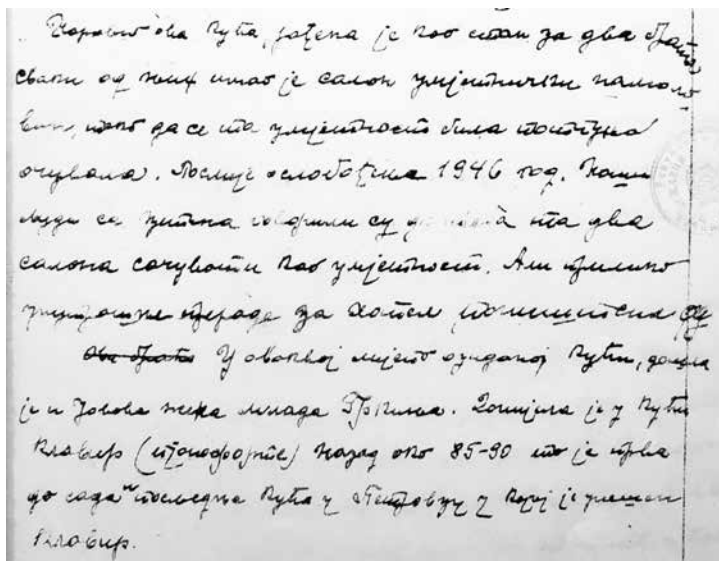 ова кућа, рађена је као стан за два брата
сваки од њих имао је салон умјетнички намоло
вин, тако да се та умјетност била потпуно
очувала. Послије ослобођења 1946 год. Наши
људи са говорили су да та два
салона сачувати као умјетност. Али приликом
преграде за хотел
У оваквој лијепо озиданој кући, дошла
је и Јовова жена млада Гркиња. Донијела је у кући
клавир назад око 85-90 то је прва
до сада и последња кућа у у којој је унешен
клавир.